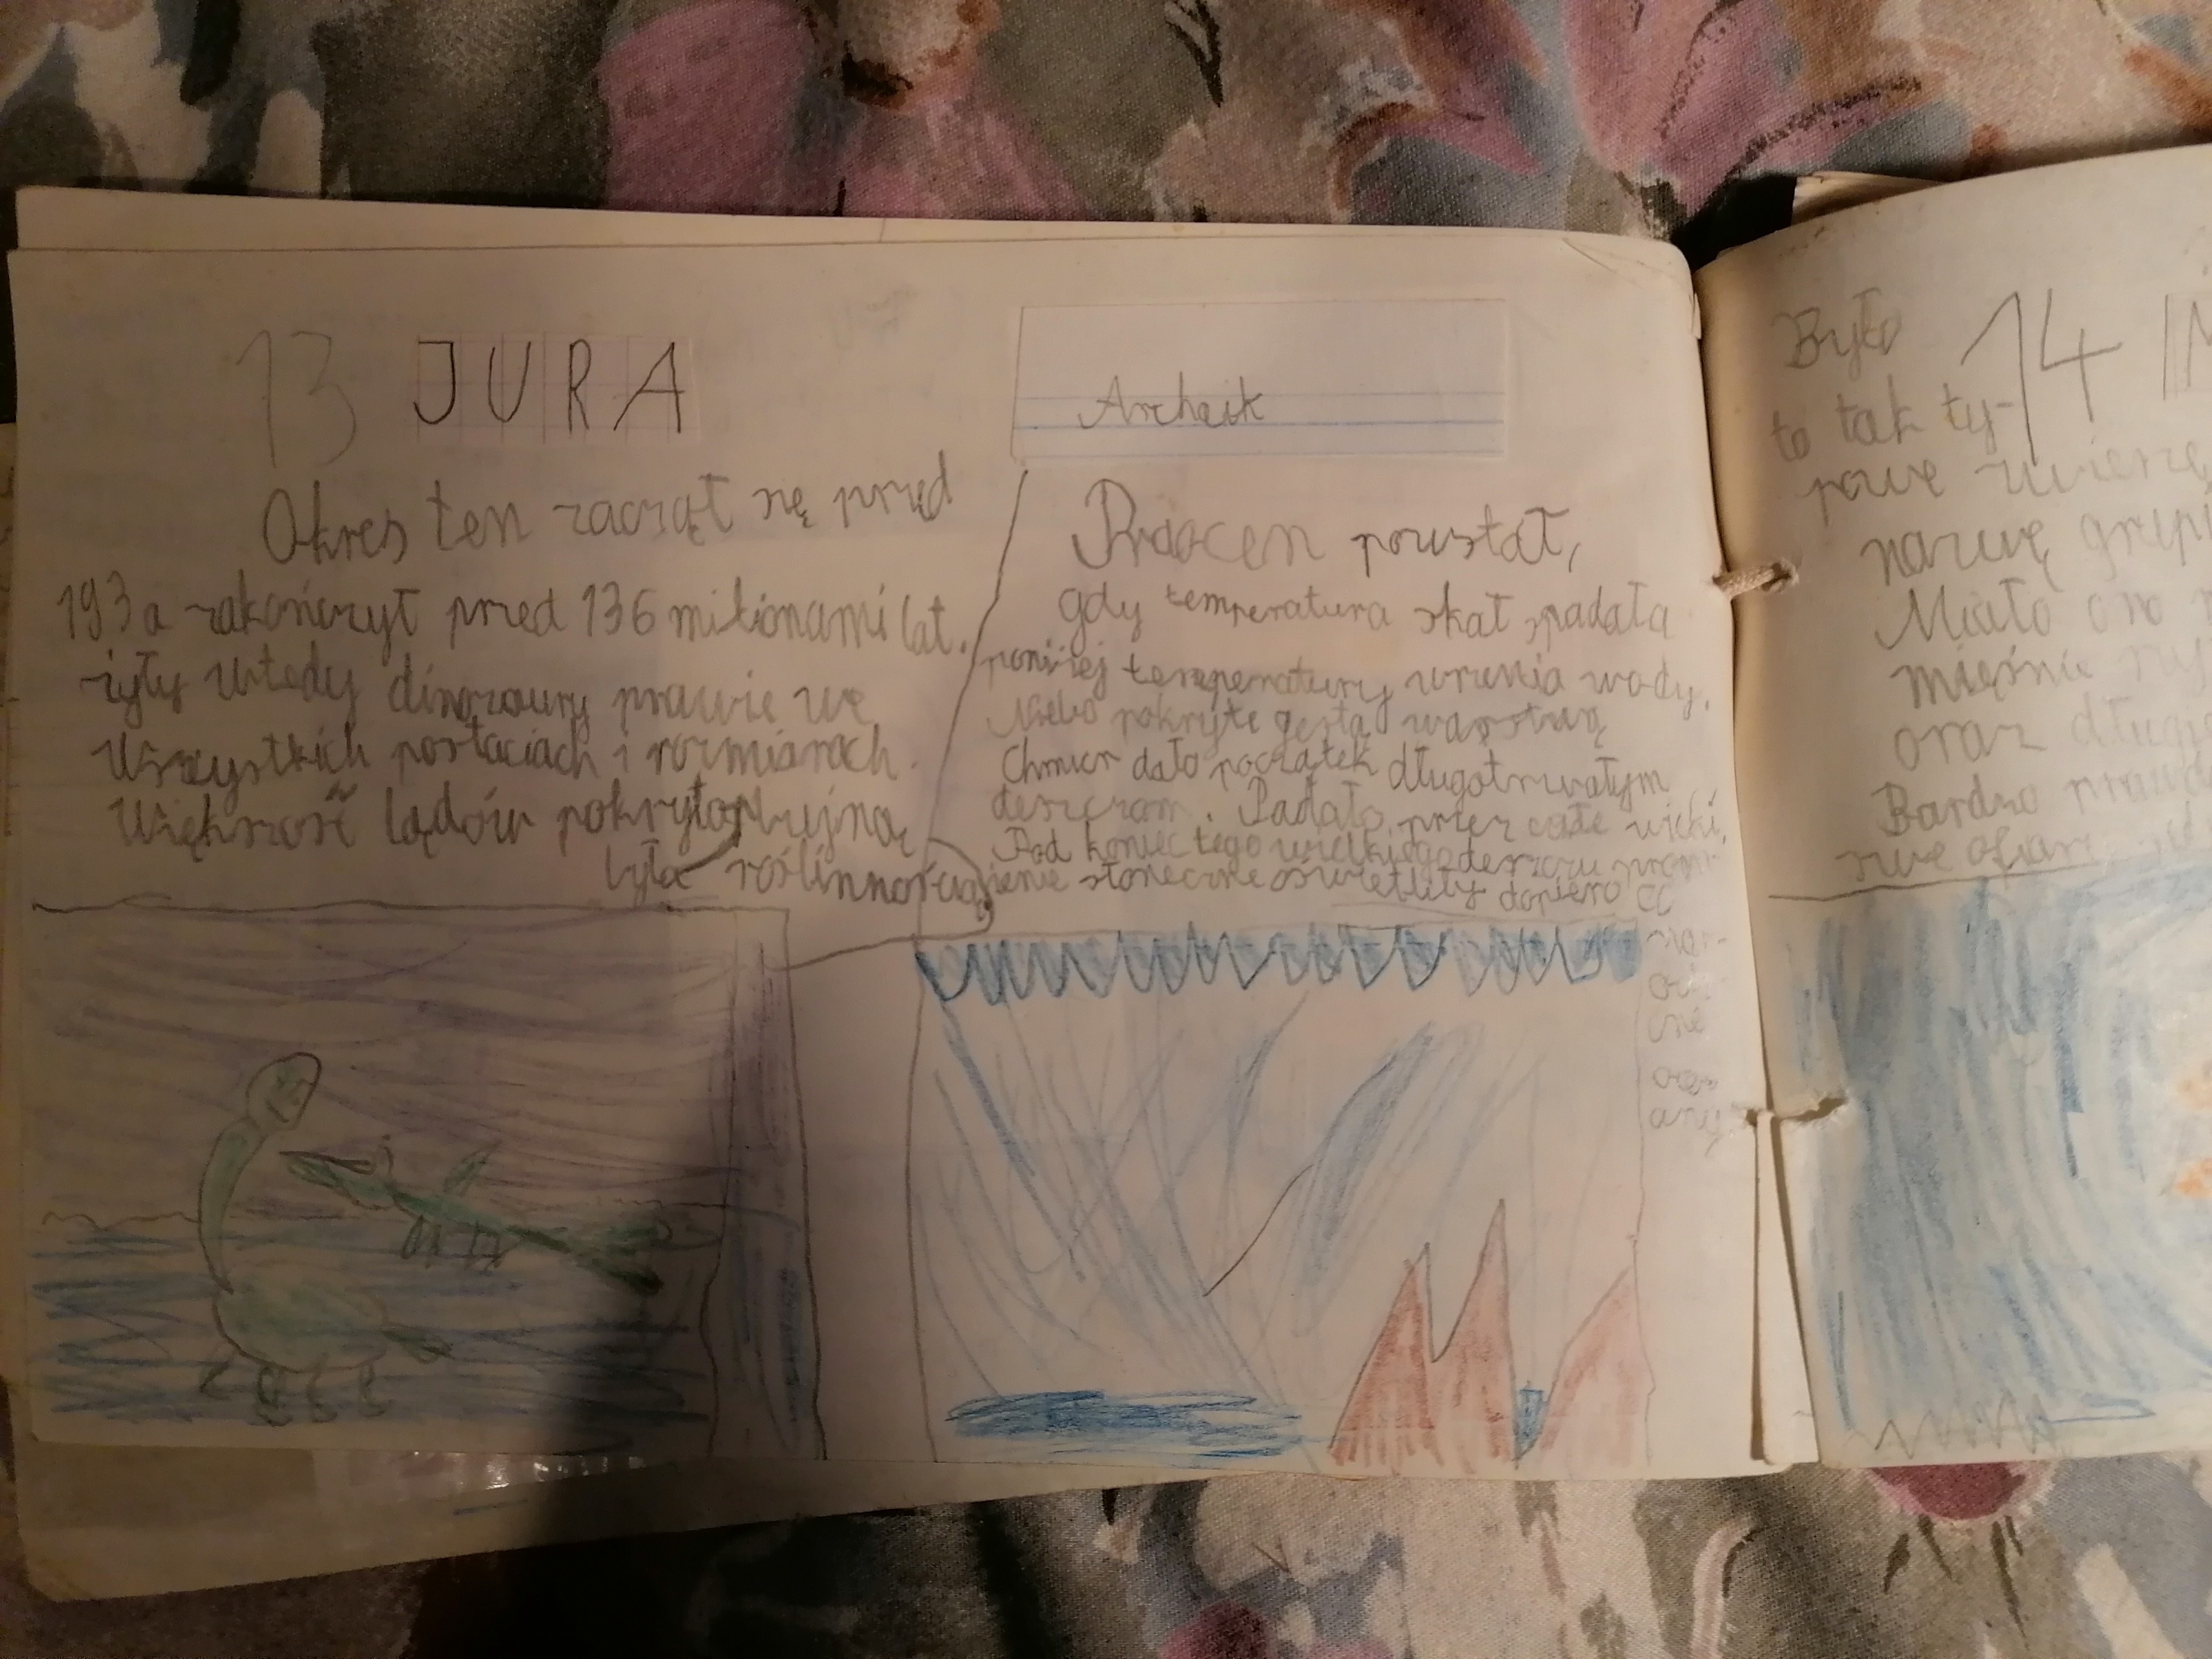 13 JURA
Okres ten zaczął się przed
193 a zakończył przed 136 milionami lat.
żyły wtedy dinozaury prawie we
wszystkich postaciach i rozmiarach.
Większość lądów pokryto bujną
była roślinnością
Archaik
Praocen powstał,
gdy temperatura skał spadała
poniżej temperatury wrzenia wody.
Niebo pokryte gęstą warstwą
Chmur dało początek długotrwałym
deszczom. Padało przez całe wieki.
Pod koniec tego wielkiego deszczu promi-
ienie słoneczne oświetliły dopiero
any
Było 14
to tak ty-
powe zwierzę
nazwę
Miało ono
mięśnie
oraz
Bardzo
swe